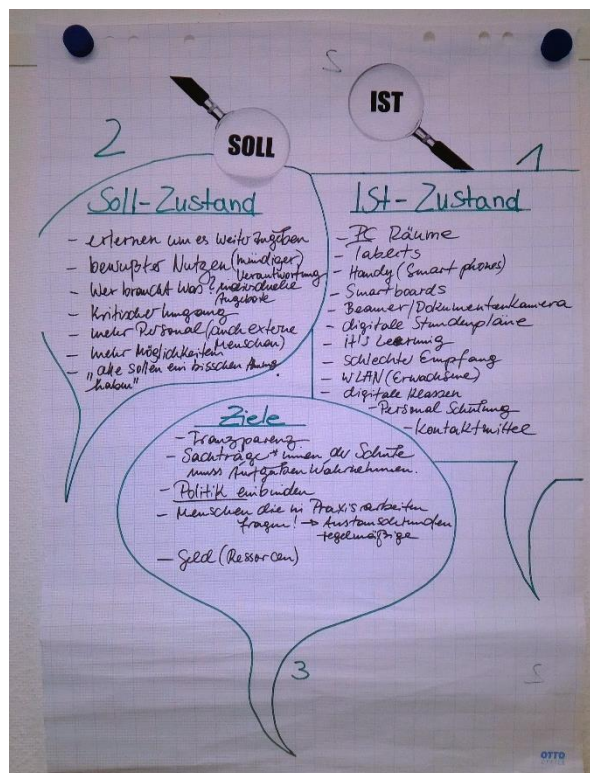 2
SOLL
Soll-Zustand
- erlernen um es weiterzugeben
- bewußter Nutzen (mündiger)
Verantwortung
- Wer braucht was? individuelle
Angebote
- Kritischer Umgang
- mehr Personal (auch externe
Menschen)
- mehr Möglichkeiten
- "alle sollen ein bisschen Ahnung
haben"
IST
1
Ist-Zustand
- PC Räume
- Taberts
- Handy (Smart phones)
- Smartboards
- Beamer/Dokumentenkamera
- digitale Stundenpläne
- it's Learning
- schlechter Empfang
- WLAN (Erwachsene)
- digitale Klassen
- Personal Schulung
- Kontaktmittel
Ziele
- Transparenz
- Sachträge*innen der Schule
muss Aufgaben Wahrnehmen.
- Politik einbinden
- Menschen die in Praxis arbeiten
fragen! → Austauschrunden
regelmäßige
- Geld (Ressorcen)
3
OTTO